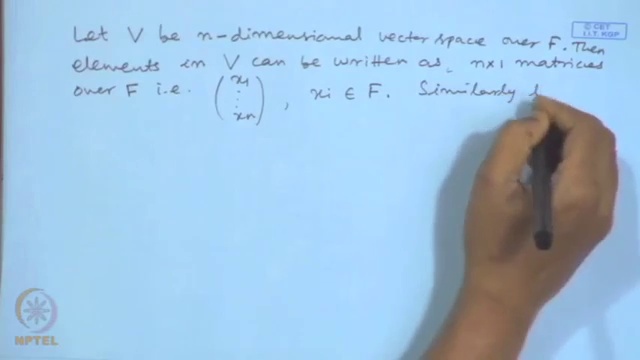 © CET
I.I.T. KGP
Let V be n-dimensional vector space over F. Then
elements in V can be written as, n×1 matrices
over F i.e. (x1 ⋮ xn), xi ∈ F. Similarly
NPTEL